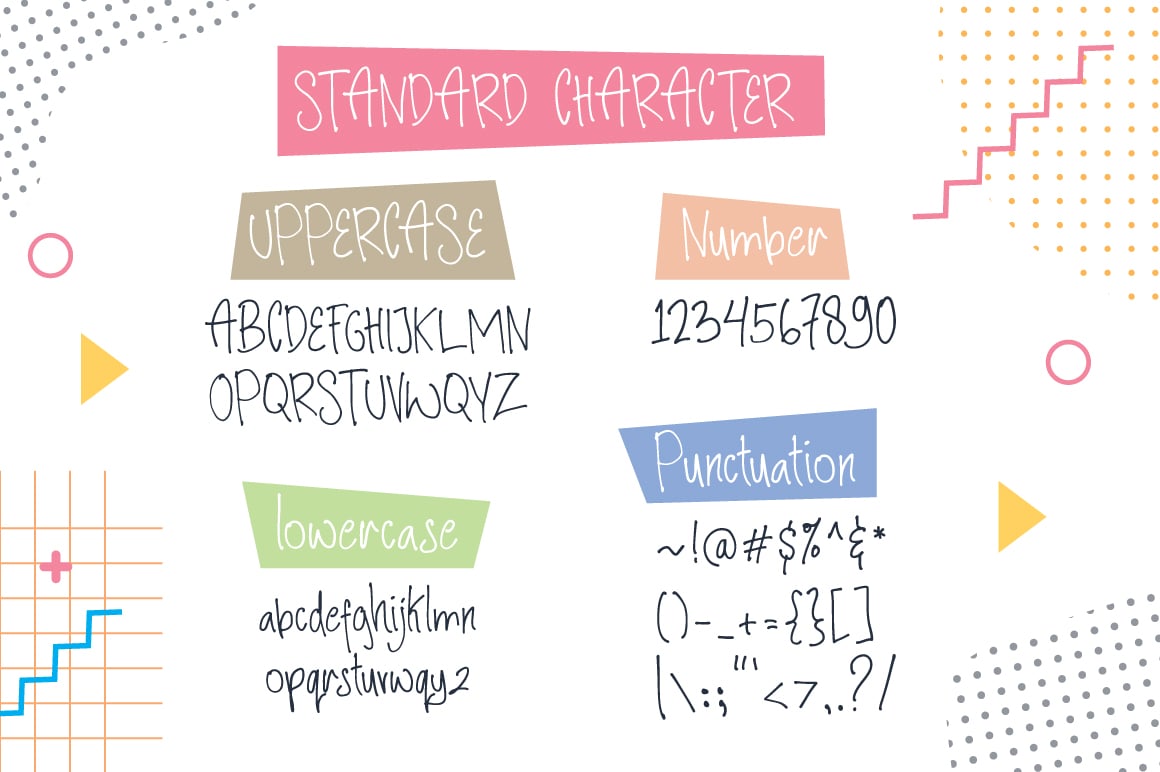 STANDARD CHARACTER
UPPERCASE
ABCDEFGHIJKLMN
OPQRSTUVWQYZ
lowercase
abcdefghijklmn
opqrstuvwqyz
Number
1234567890
Punctuation
~!@#$%^&*
()-_+={}[]
|\:;"'<>,.?/